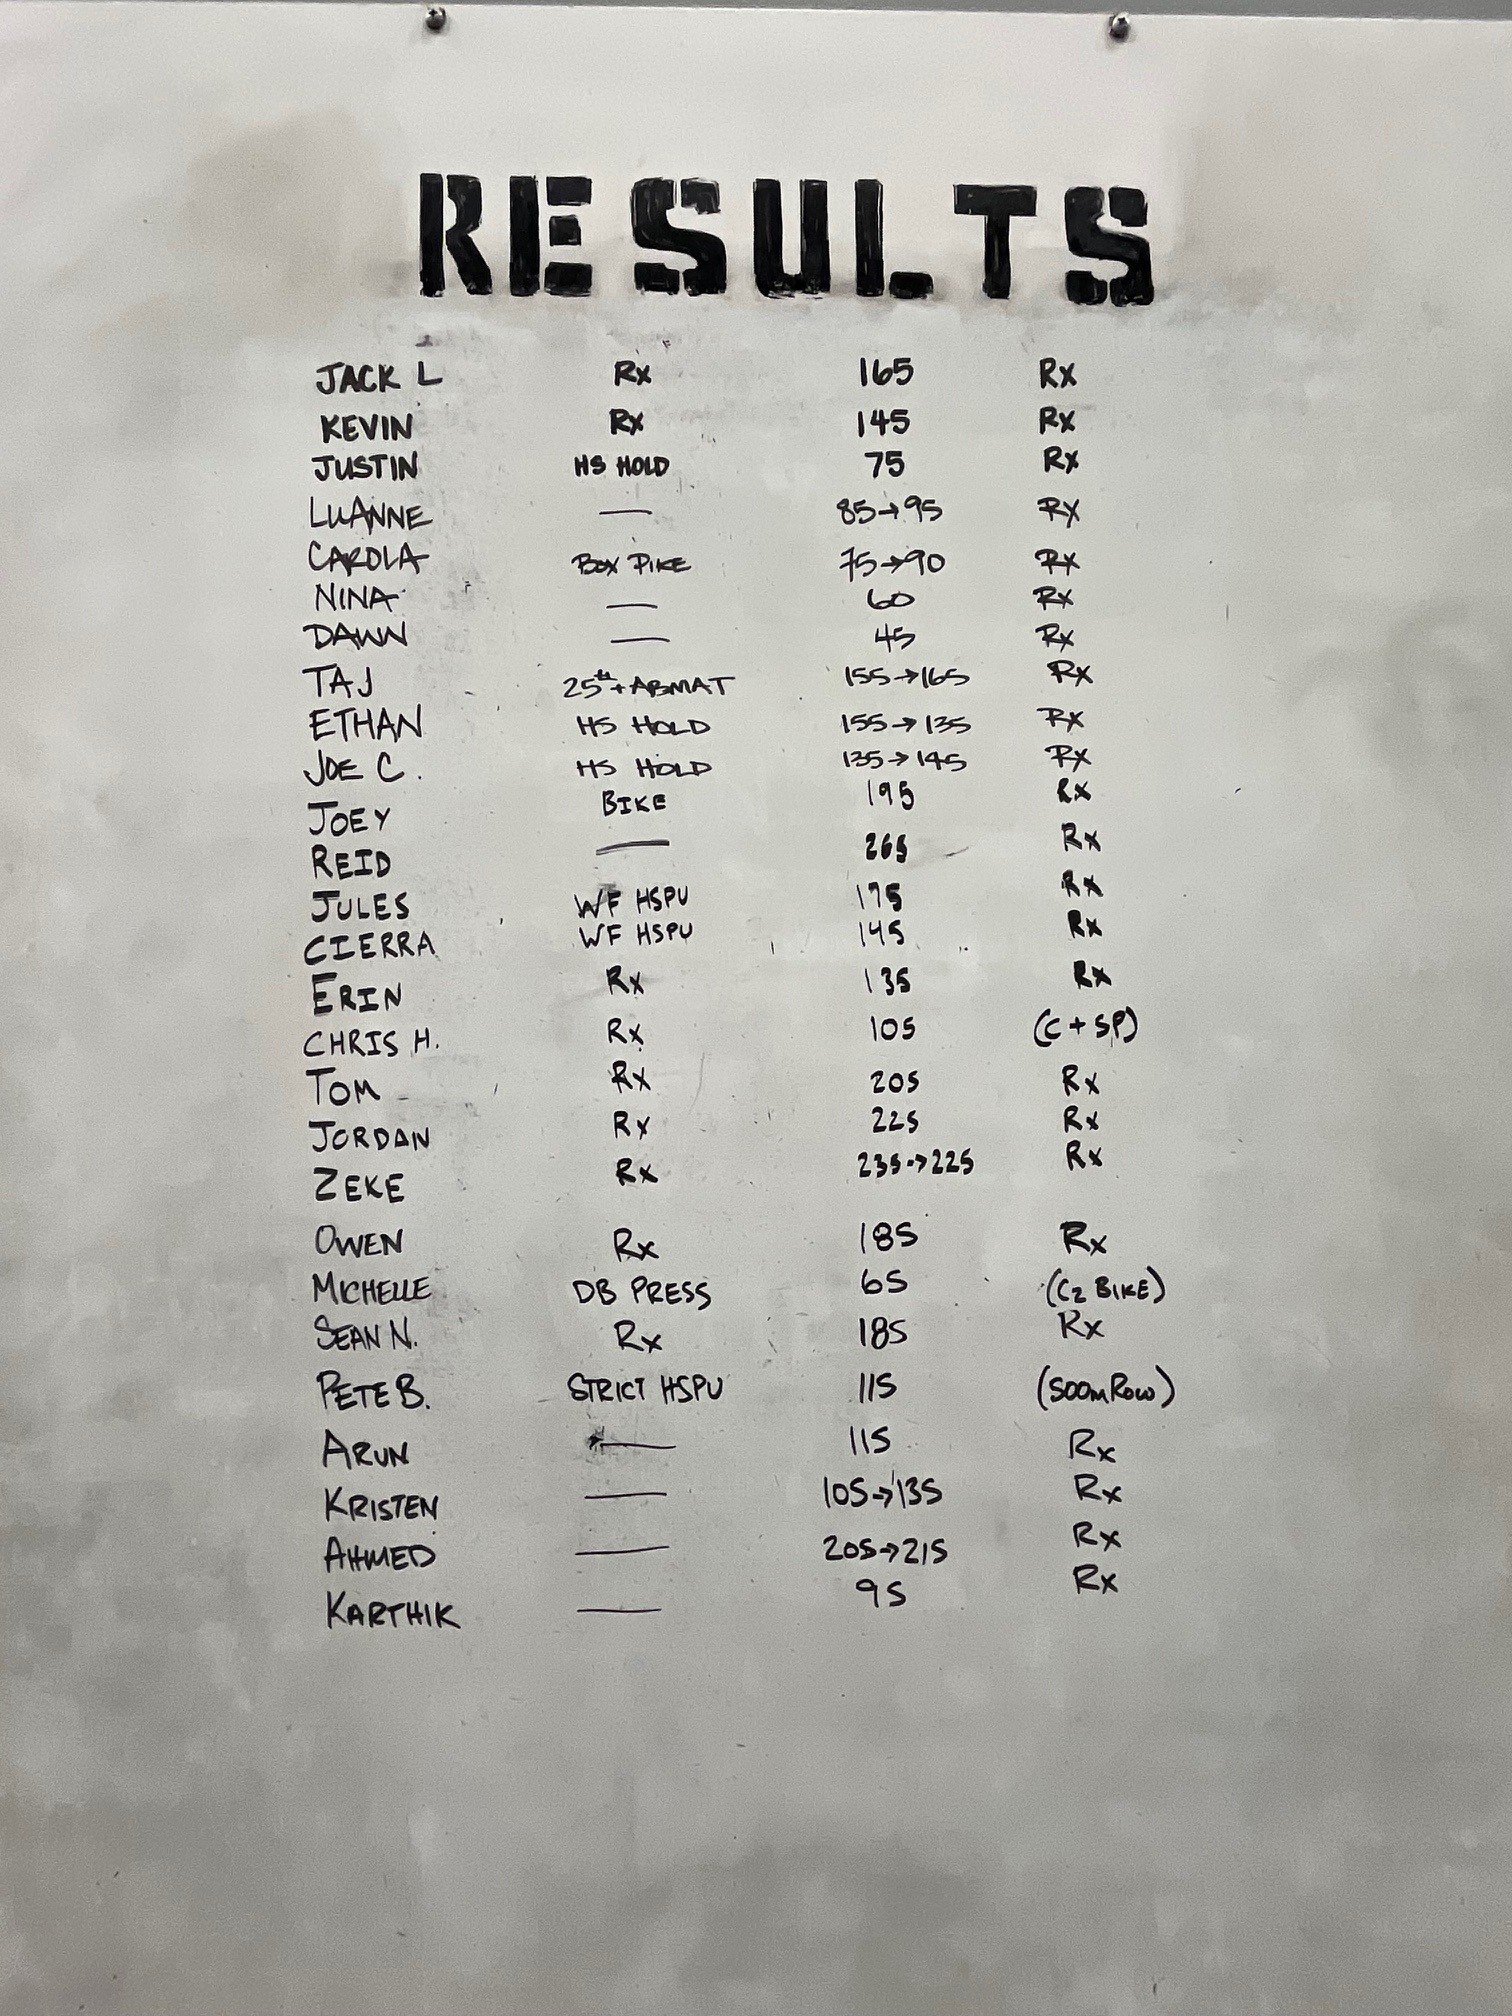 RESULTS
JACK L Rx 165 Rx
KEVIN Rx 145 Rx
JUSTIN HS HOLD 75 Rx
LUANNE — 85→95 Rx
CAROLA BOX PIKE 75→90 Rx
NINA — 60 Rx
DAWN — 45 Rx
TAJ 25#+ABMAT 155→165 Rx
ETHAN HS HOLD 155→135 Rx
JOE C. HS HOLD 135→145 Rx
JOEY BIKE 195 Rx
REID — 265 Rx
JULES WF HSPU 175 Rx
CIERRA WF HSPU 145 Rx
ERIN Rx 135 Rx
CHRIS H. Rx 105 (C + SP)
TOM Rx 205 Rx
JORDAN Rx 225 Rx
ZEKE Rx 235→225 Rx
OWEN Rx 185 Rx
MICHELLE DB PRESS 65 (C2 BIKE)
SEAN N. Rx 185 Rx
PETE B. STRICT HSPU 115 (500m Row)
ARUN — 115 Rx
KRISTEN — 105→135 Rx
AHMED — 205→215 Rx
KARTHIK — 95 Rx